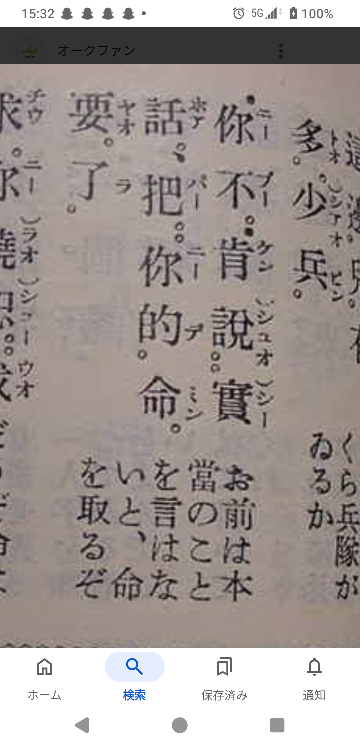 15:32
5G
100%
オークファン
多。少兵。
トオ シァオ ビン
くら兵隊が
ゐるか
你不肯說實
ニー プー ケン シュオ シー
話、把你的命。
ホア パー ニー デ ミン
要。了。
ヤオ ラ
お前は本
當のこと
を言はな
いと、命
を取るぞ
求。你饒
チウ ニー ラオ シュー ウオ
ホーム
検索
保存済み
通知